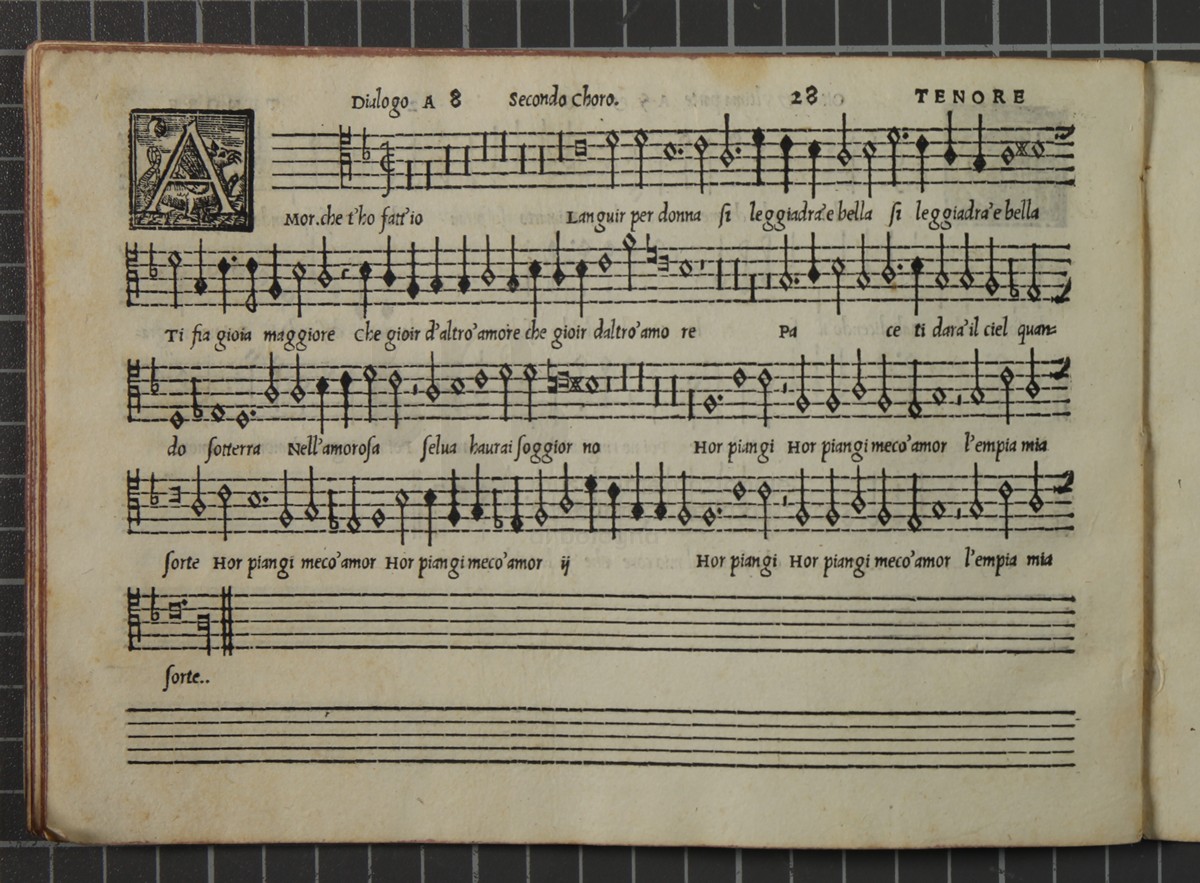 Dialogo A 8 Secondo Choro. 28 TENORE
AMor.che t'ho fatt'io Languir per donna ſi leggiadra'e bella ſi leggiadra'e bella
Ti fia gioia maggiore Che gioir d'altro'amore che gioir daltro'amo re Pa ce ti dara'il ciel quan=
do ſotterra Nell'amoroſa ſelua haurai ſoggior no Hor piangi Hor piangi meco'amor l'empia mia
ſorte Hor piangi meco'amor Hor piangi meco'amor ij Hor piangi Hor piangi meco'amor l'empia mia
ſorte..